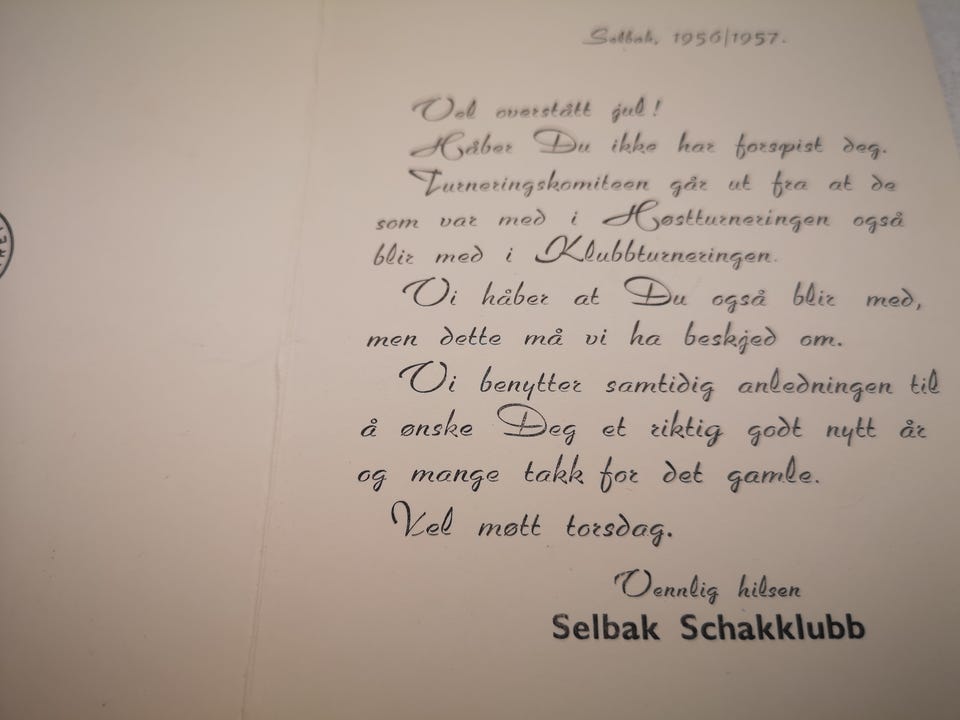 Selbak, 1956/1957.
Vel overstått jul!
Håber Du ikke har forspist deg.
Turneringskomiteen går ut fra at de
som var med i Høstturneringen også
blir med i Klubbturneringen.
Vi håber at Du også blir med,
men dette må vi ha beskjed om.
Vi benytter samtidig anledningen til
å ønske Deg et riktig godt nytt år
og mange takk for det gamle.
Vel møtt torsdag.
Vennlig hilsen
Selbak Schakklubb